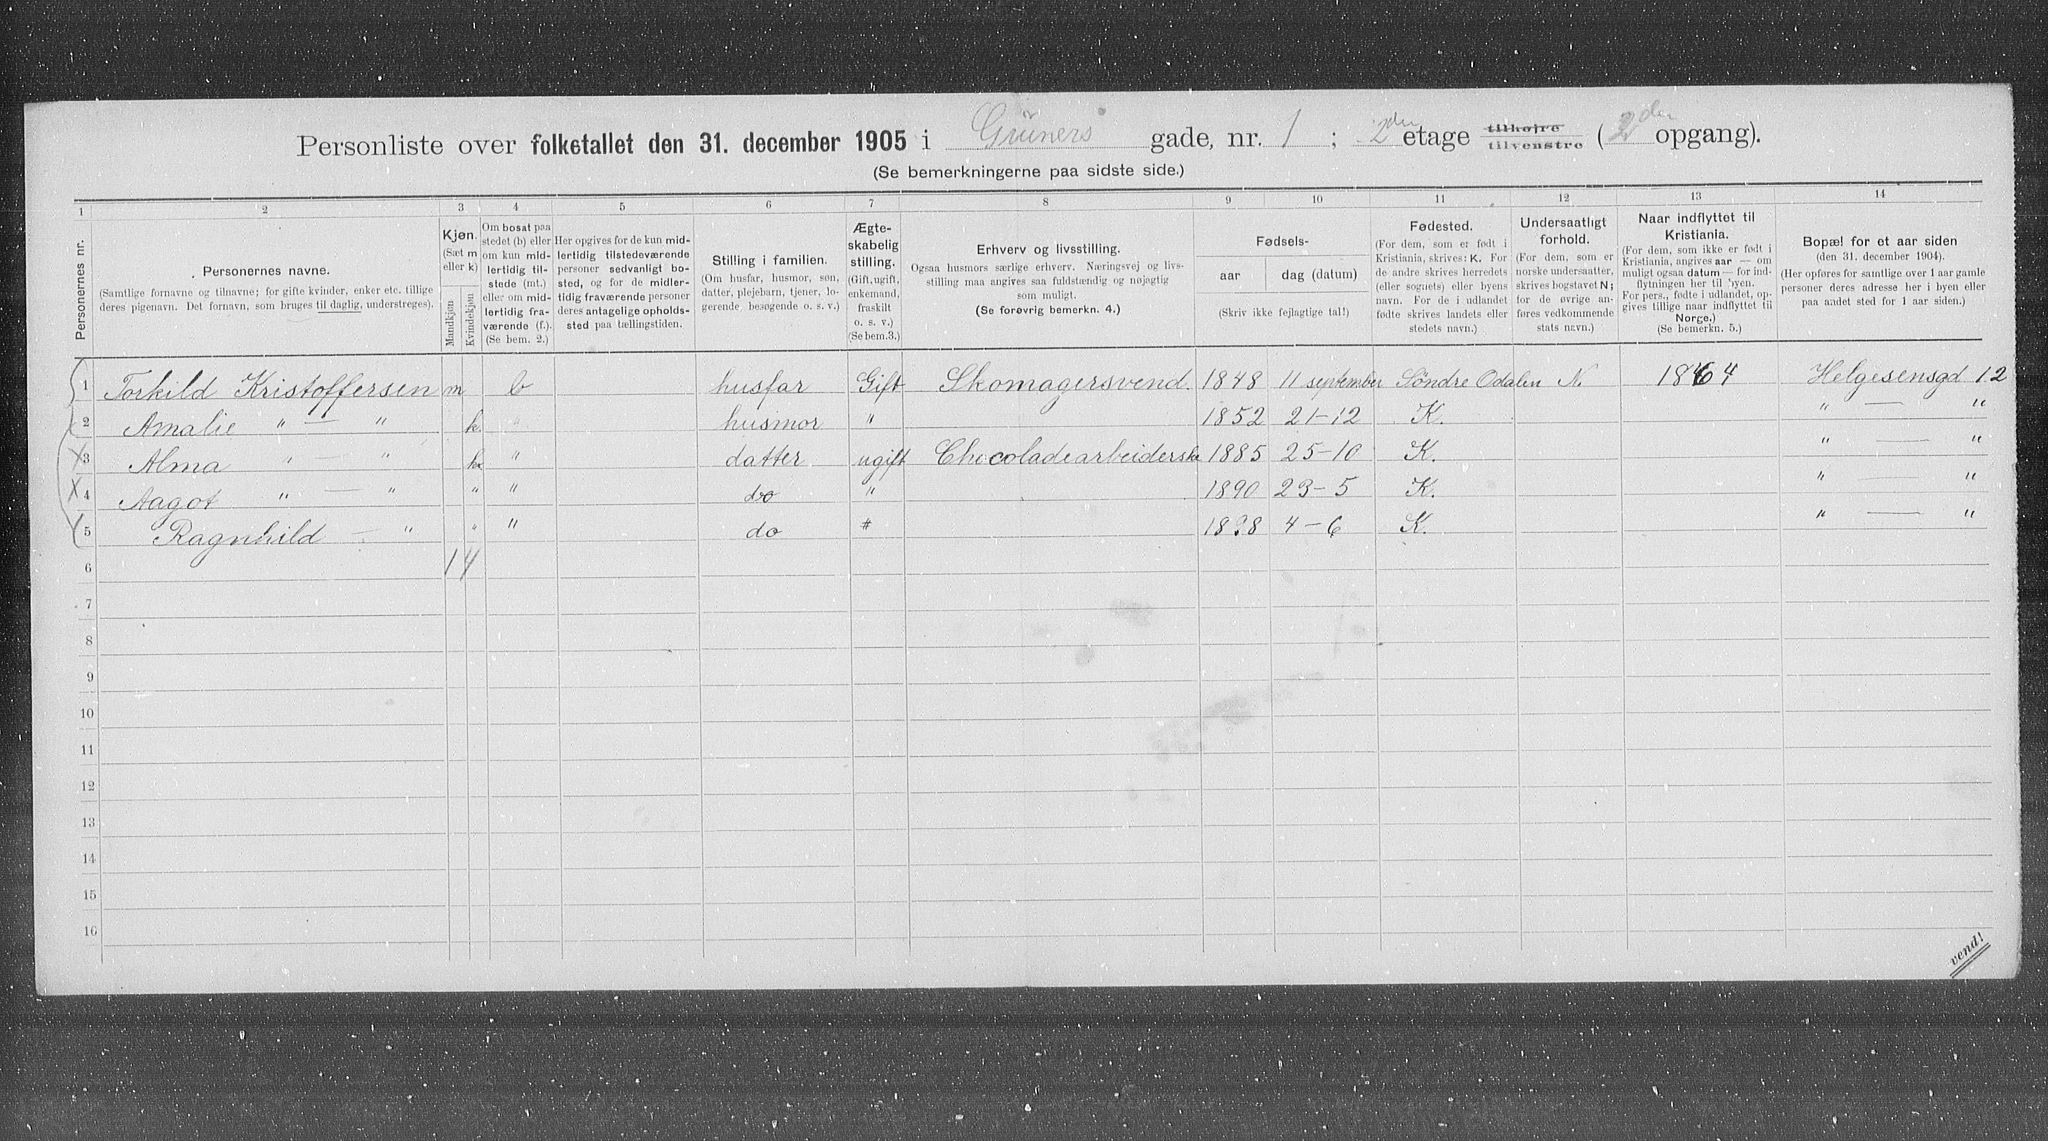 Personliste over folketallet den 31. december 1905 i Grüners gade, nr. 1 ; 2den etage tilhøjre tilvenstre ( 2den opgang).
(Se bemerkningerne paa sidste side.)
1 2 3 4 5 6 7 8 9 10 11 12 13 14
Personernes nr.
Personernes navne.
(Samtlige fornavne og tilnavne; for gifte kvinder, enker etc. tillige
deres pigenavn. Det fornavn, som bruges til daglig, understreges).
Kjøn.
(Sæt m
eller k)
Mandkjøn
Kvindekjøn
Om bosat paa
stedet (b) eller
om kun mid-
lertidig til-
stede (mt.)
eller om mid-
lertidig fra-
værende (f.).
(Se bem. 2.)
Her opgives for de kun mid-
lertidig tilstedeværende
personer sedvanligt bo-
sted, og for de midler-
tidig fraværende personer
deres antagelige opholds-
sted paa tællingstiden.
Stilling i familien.
(Om husfar, husmor, søn,
datter, plejebarn, tjener, lo-
gerende, besøgende o. s. v.)
Ægte-
skabelig
stilling.
(Gift, ugift,
enkemand,
fraskilt
o. s. v.)
(Se bem.3.)
Erhverv og livsstilling.
Ogsaa husmors særlige erhverv. Næringsvej og livs-
stilling maa angives saa fuldstændig og nøjagtig
som muligt.
(Se forøvrig bemerkn. 4.)
Fødsels-
aar dag (datum)
(Skriv ikke fejlagtige tal!)
Fødested.
(For dem, som er født i
Kristiania, skrives: K. For
de andre skrives herredets
(eller sognets) eller byens
navn. For de i udlandet
fødte skrives landets eller
stedets navn.)
Undersaatligt
forhold.
(For dem, som er
norske undersaatter,
skrives bogstavet N;
for de øvrige an-
føres vedkommende
stats navn.)
Naar indflyttet til
Kristiania.
(For dem, som ikke er født i
Kristiania, angives aar — om
muligt ogsaa datum — for ind-
flytningen her til byen.
For pers., fødte i udlandet, op-
gives tillige naar indflyttet til
Norge.)
(Se bemerkn. 5.)
Bopæl for et aar siden
(den 31. december 1904).
(Her opføres for samtlige over 1 aar gamle
personer deres adresse her i byen eller
paa andet sted for 1 aar siden.)
1 Torkild Kristoffersen m b husfar Gift Skomagersvend. 1848 11 september Söndre Odalen N. 1864 Helgesensgd 12
2 Amalie " — " k. " husmor " 1852 21-12 K. " — "
3 Alma " — " k " datter ugift Chocoladearbeiderske 1885 25-10 K. " — "
4 Aagot " — " " " do " 1890 23-5 K. " — "
5 Ragnhild — " " " do " 4-6 K. " — "
6 1 4
7
8
9
10
11
12
13
14
15
16
vend!